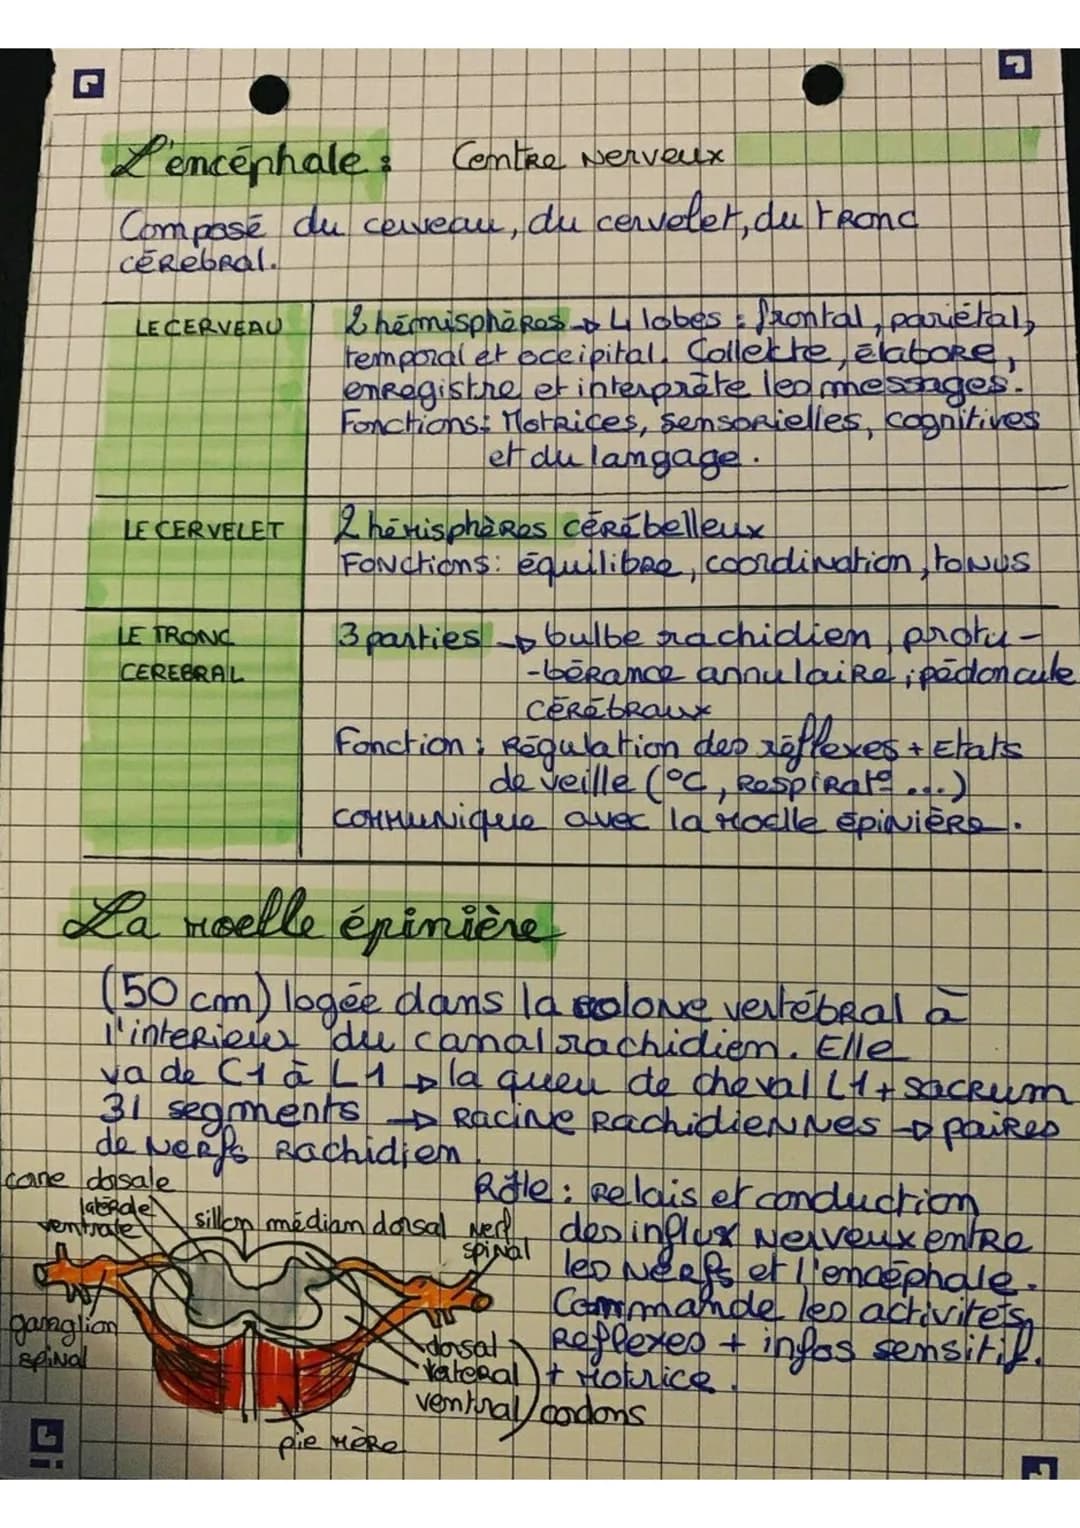 L'encéphale : Centre Nerveux
Composé du cerveau, du cervelet, du tronc
cérebral.
LE CERVEAU
2 hémisphères → 4 lobes : frontal, pariétal,
temporal et occipital. Collecte, élabore,
enregistre et interprète les messages.
Fonctions: Motrices, sensorielles, cognitives
et du langage.
LE CERVELET
2 hémisphères cérébelleux
Fonctions: équilibre, coordination, tonus
LE TRONC
CEREBRAL
3 parties → bulbe rachidien, protu-
-bérance annulaire ; pédoncule
cérébraux
Fonction : Régulation des réflexes + Etats
de veille (°C, Respirat° ...)
communique avec la moelle épinière.
La moelle épinière
(50 cm) logée dans la colone vertébral à
l'interieur du canal rachidien. Elle
va de C1 à L1 → la queu de cheval L1 + sacrum
31 segments → Racine Rachidiennes → paires
de Nerfs Rachidien
corne dorsale
latérale
ventrale
sillon médian dorsal
Nerf
spinal
ganglion
spinal
dorsal
lateral
ventral
cordons
pie mère
Rôle : Relais et conduction
des influx Nerveux entre
les Nerfs et l'encéphale.
Commande les activités
Reflexes + infos sensitif.
+ Motrice.